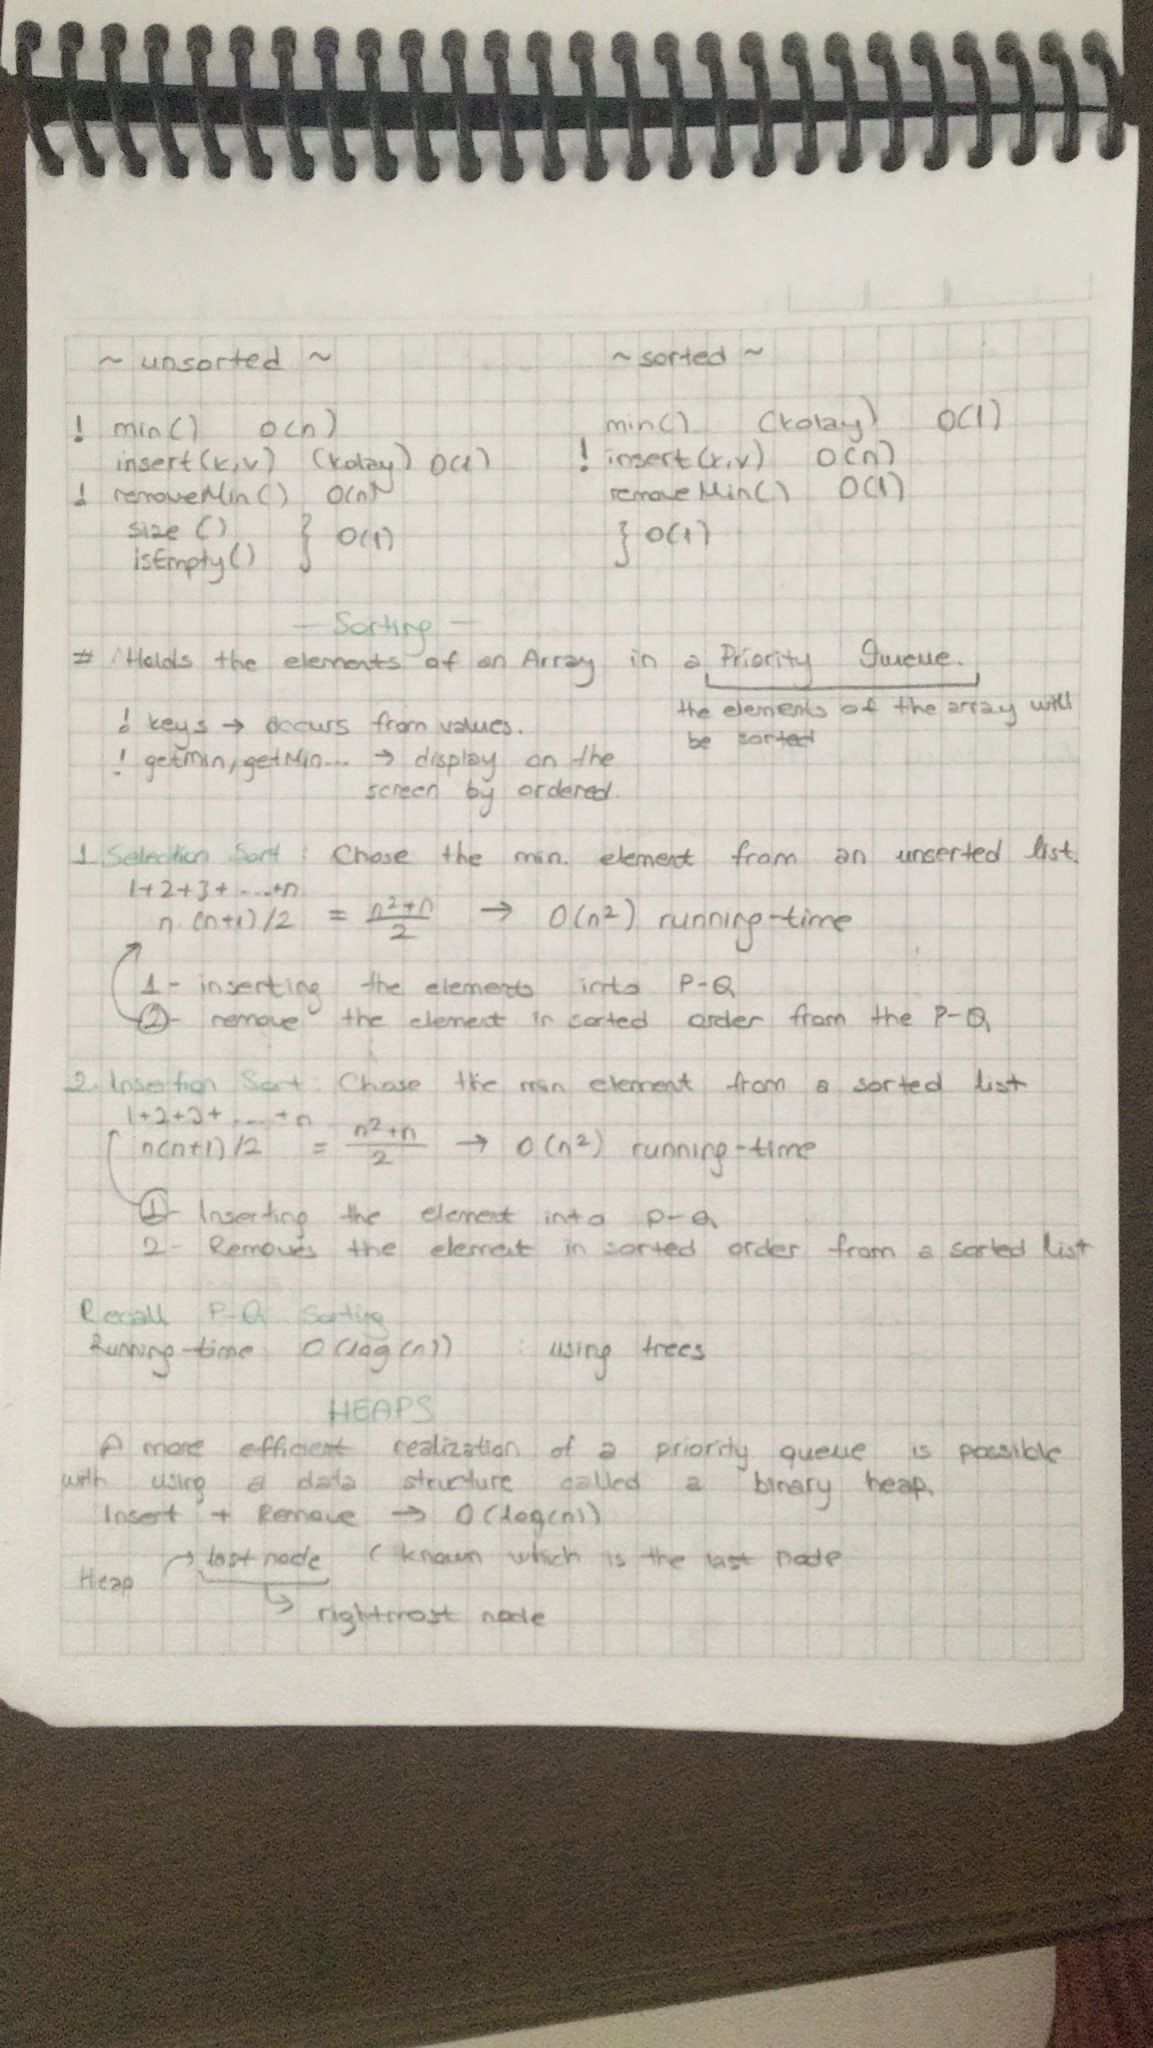 ~ unsorted ~
! min() O(n)
insert(k,v) (kolay) O(1)
! removeMin() O(n)
size ()
isEmpty() } O(1)
~ sorted ~
min() (kolay) O(1)
! insert(k,v) O(n)
removeMin() O(1)
} O(1)
— Sorting —
# Holds the elements of an Array in a Priority Queue.
the elements of the array will
be sorted
! keys → occurs from values.
! getmin, getMin... → display on the
screen by ordered.
1. Selection Sort : Chose the min. element from an unserted list.
1+2+3+ ...+n
n.(n+1)/2 = n²+n/2 → O(n²) running-time
1- inserting the elements into P-Q
2- remove the element in sorted order from the P-Q
2. Insertion Sort : Chose the min element from a sorted list
1+2+3+ ... +n
n(n+1)/2 = n²+n/2 → O(n²) running-time
1- Inserting the element into P-Q
2- Removes the element in sorted order from a sorted list
Recall P-Q Sorting
Running-time O(log(n)) : using trees
HEAPS
A more efficient realization of a priority queue is possible
with using a data structure called a binary heap.
Insert + Remove → O(log(n))
Heap → last node ( known which is the last node
→ rightmost node